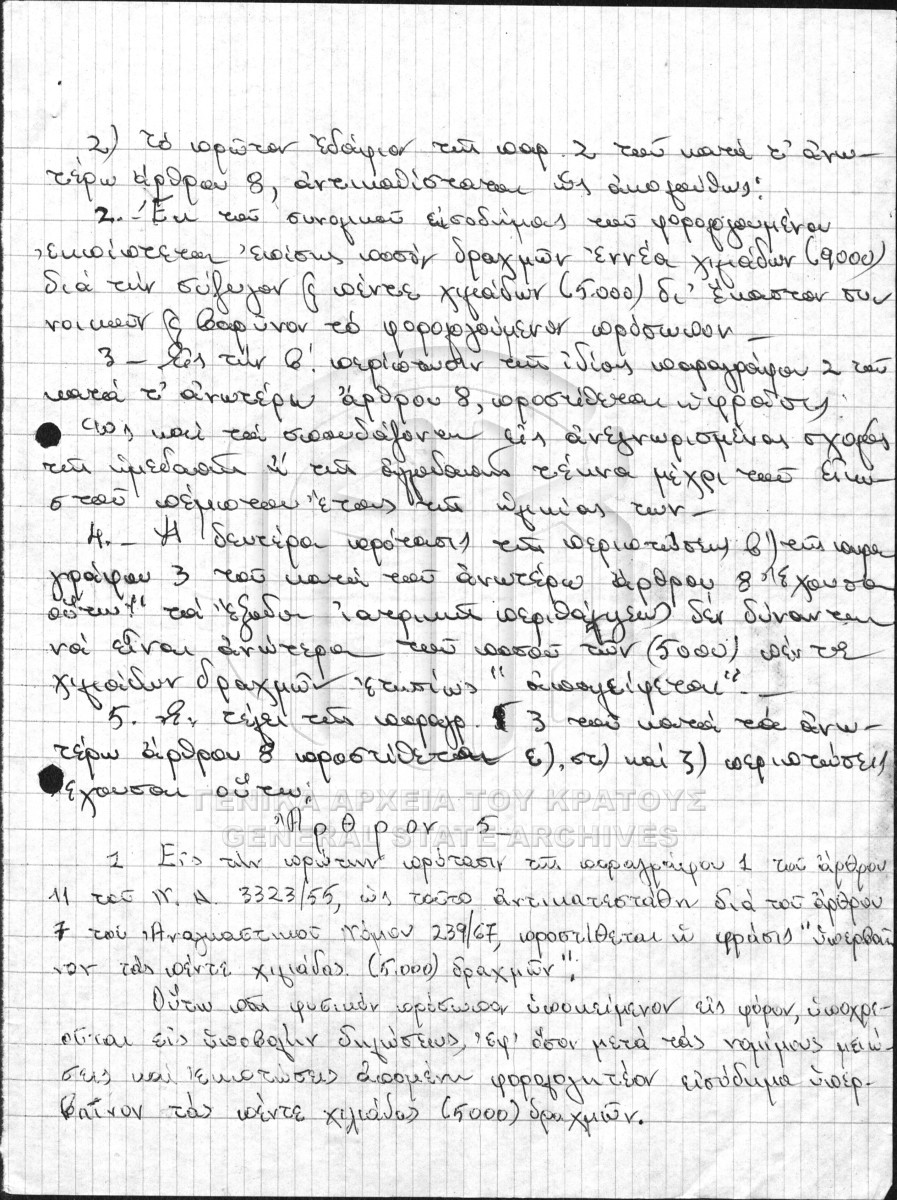 2) Τό πρῶτον ἐδάφιον τῆς παρ. 2 τοῦ κατά τ' ἀνω-
τέρω ἄρθρου 8, ἀντικαθίσταται ὡς ἀκολούθως:
2.- Ἐκ τοῦ συνολικοῦ εἰσοδήματος τοῦ φορολογουμένου
ἐκπίπτεται ἐπίσης ποσόν δραχμῶν ἐννέα χιλιάδων (9000)
διά τήν σύζυγον ϗ πέντε χιλιάδων (5.000) δι' ἕκαστον συ
νοικοῦν ϗ βαρῦνον τό φορολογούμενον πρόσωπον -
3 - Εἰς τήν β'. περίπτωσιν τῆς ἰδίας παραγράφου 2 τοῦ
κατά τ' ἀνωτέρω ἄρθρου 8, προστίθεται ἡ φράσις:
"ὡς καί τά σπουδάζοντα εἰς ἀνεγνωρισμένας σχολάς
τῆς ἡμεδαπῆς ἤ τῆς ἀλλοδαπῆς τέκνα μέχρι τοῦ εἰκο
στοῦ πέμπτου ἔτους τῆς ἡλικίας των -
4. - Ἡ δευτέρα πρότασις τῆς περιπτώσεως β') τῆς παρα
γράφου 3 τοῦ κατά τοῦ ἀνωτέρω ἄρθρου 8 ἔχουσα
οὕτω: "τά ἔξοδα ἰατρικῆς περιθάλψεως δέν δύνανται
νά εἶναι ἀνώτερα τοῦ ποσοῦ τῶν (5000) πέντε
χιλιάδων δραχμῶν ἐτησίως" ἀπαλείφεται". -
5. Ἐν τέλει τῆς παραγρ. 3 τοῦ κατά τά ἀνω-
τέρω ἄρθρου 8 προστίθεται ε), στ) καί ζ) περιπτώσεις
ἔχουσαι οὕτω:
ΓΕΝΙΚΑ ΑΡΧΕΙΑ ΤΟΥ ΚΡΑΤΟΥΣ
Ἄρθρον 5
GENERAL STATE ARCHIVES
1 Εἰς τήν πρώτην πρότασιν τῆς παραγράφου 1 τοῦ ἄρθρου
11 τοῦ Ν. Δ. 3323/55, ὡς τοῦτο ἀντικατεστάθη διά τοῦ ἄρθρου
7 τοῦ Ἀναγκαστικοῦ Νόμου 239/67, προστίθεται ἡ φράσις "ὑπερβαῖ
νον τάς πέντε χιλιάδας (5.000) δραχμῶν":
Οὕτω πᾶν φυσικόν πρόσωπον ὑποκείμενον εἰς φόρον, ὑποχρε-
οῦται εἰς ὑποβολήν δηλώσεως, ἐφ' ὅσον μετά τάς νομίμους μειώ-
σεις καί ἐκπτώσεις ἀπομένη φορολογητέον εἰσόδημα ὑπερ-
βαῖνον τάς πέντε χιλιάδας (5000) δραχμῶν.